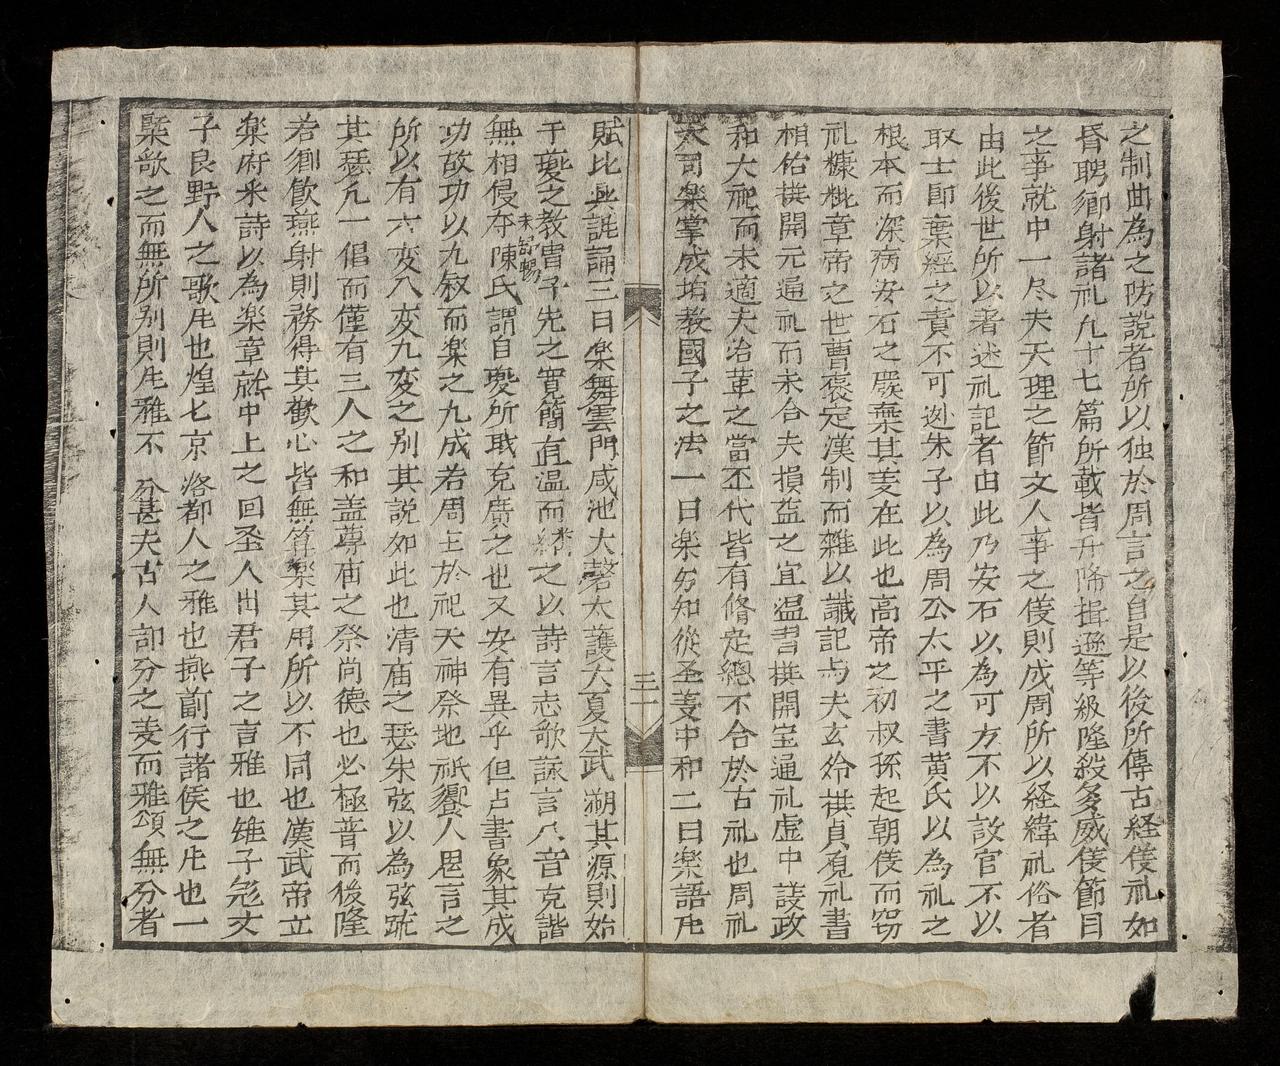 之制曲為之防説者所以独於周言之自是以後所傳古経儀礼如
昏聘鄉射諸礼凢十七篇所載皆升降揖遜等級隆殺多威儀節目
之事就中一尽夫天理之節文人事之儀則成周所以経緯礼俗者
由此後世所以著述礼記者由此乃安石以為可方不以設官不以
取士即棄經之責不可逃朱子以為周公太平之書黄氏以為礼之
根本而深病安石之廢棄其姜在此也高帝之初叔孫起朝儀而窃
礼糠粃章帝之世曹褒定漢制而雜以讖記与夫玄齡祺貞覔礼書
相佑撰開元通礼而未合夫損益之宜温書撰開宝通礼虚中謨政
和大祀而未適夫治軰之當歪代皆有脩定總不合於古礼也周礼
大司楽掌成埍教國子之法一曰楽为知從圣姜中和二曰楽語凢
三一
賦比興誂誦三曰楽舞雲門咸池大磬大護大夏大武溯其源則始
于夔之教冑子先之寛簡直温而継之以詩言志歌詠言八音克諧
無相侵夺未舒暢陳氏謂自夔所耿克廣之也又安有異乎但占書象其成
功故功以九叙而楽之九成若周主於祀天神祭地祇饗人恩言之
所以有六变八变九变之别其説如此也清庙之瑟朱弦以為弦䟽
其瑟凢一倡而僅有三人之和盖尊庙之祭尚德也必極普而後隆
若鄉飲燕射則務得其歡心皆無筭楽其用所以不同也漢武帝立
楽府采詩以為楽章就中上之回圣人出君子之言雅也雉子兔丈
子良野人之歌凢也煌匕京洛都人之雅也燕蒯行諸侯之凢也一
槩歌之而無所别則凢雅不分甚夫古人卲分之姜而雅頌無分者